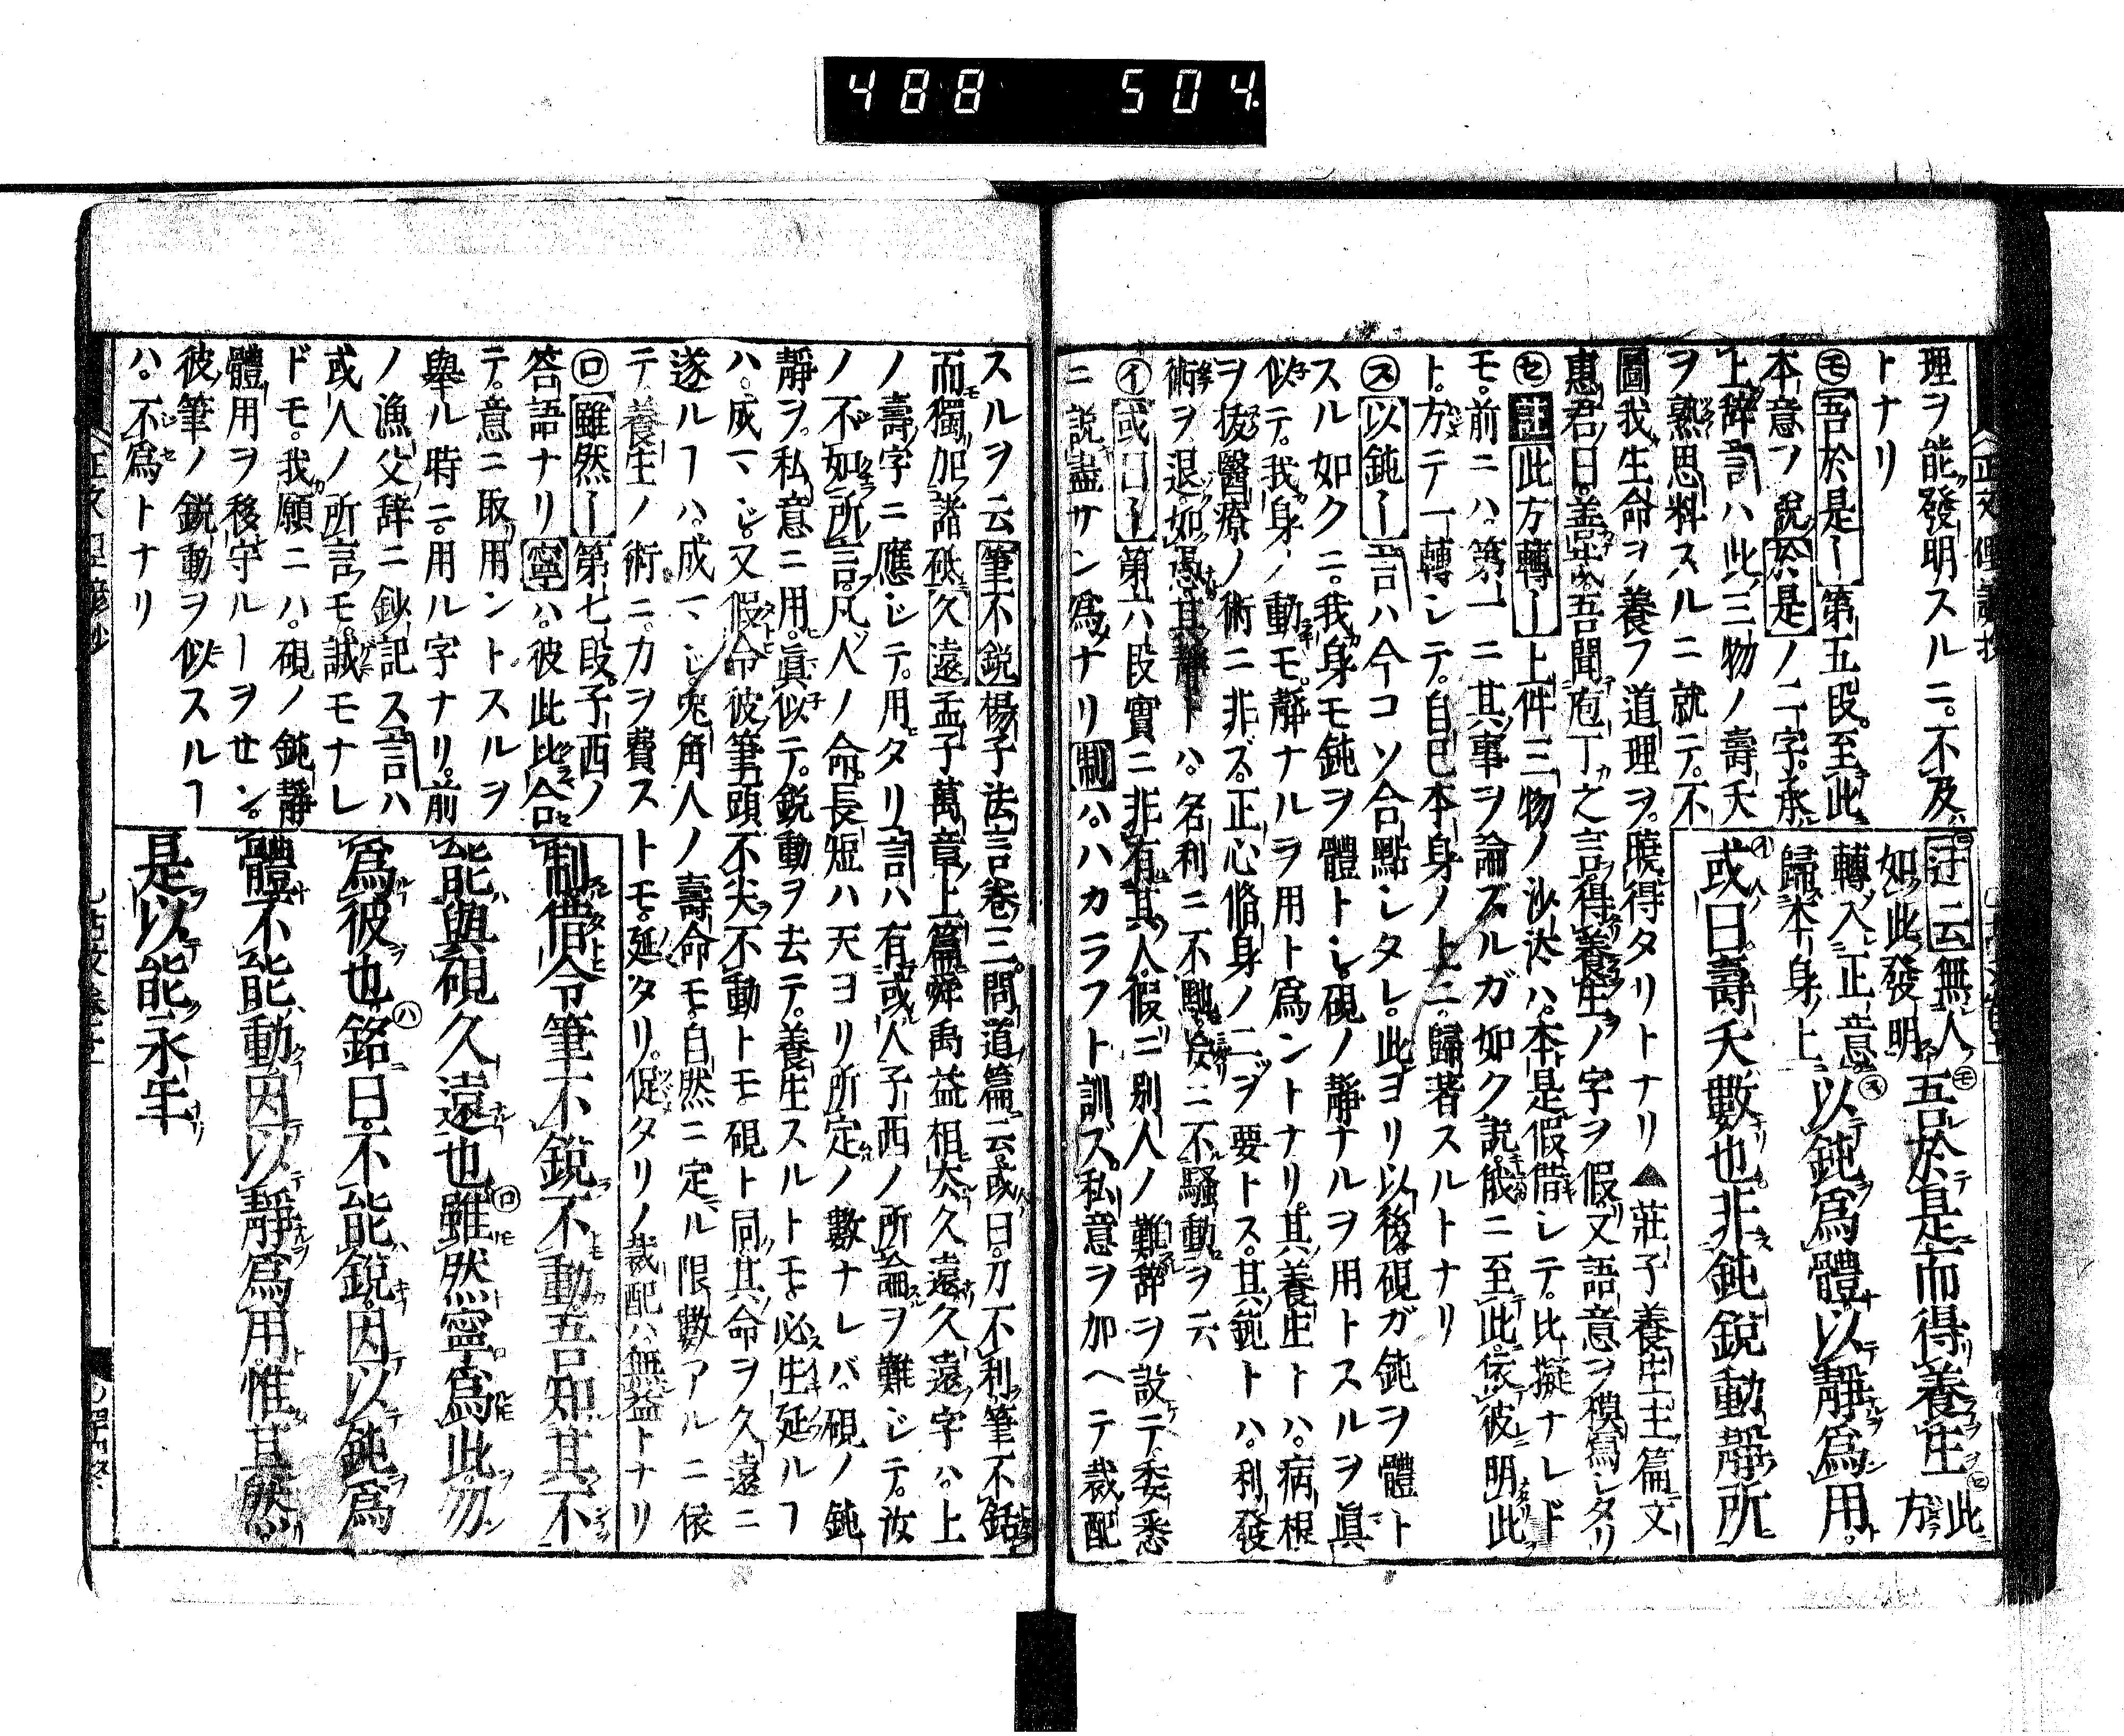 488 504
理ヲ能發明スルニ。不及
トナリ
㋲吾於是ー第五段。至此
本意ヲ說於是ノ二字。承
上辞言ハ此三物ノ壽夭
ヲ熟思料スルニ就テ。不
圖我生命ヲ養フ道理ヲ。曉得タリトナリ▲莊子養生主篇文
惠君曰。善哉吾聞庖丁之言得養生ノ字ヲ假又語意ヲ模寫シタリ
㋝註此方轉ー上件三物ノ沙汰ハ。本是假借シテ。比擬ナレド
モ。前ニハ。第一ニ其事ヲ論ズルガ如ク説。俄ニ至此。依彼明此
ト。方テ一轉シテ。自已本身ノ上ニ。歸著スルトナリ
㋜以鈍ー言ハ今コソ合點シタレ。此ヨリ以後。硯ガ鈍ヲ體ト
スル如クニ。我身モ鈍ヲ體トシ。硯ノ靜ナルヲ用トスルヲ眞
似テ。我身ノ動モ。靜ナルヲ用ト爲ントナリ。其養生トハ。病根
ヲ拔醫療ノ術ニ非ズ。正心脩身ノ二ヲ要トス。其鈍トハ。利發
術ヲ退。如愚其靜トハ。名利ニ不馳。妄ニ不騷動ヲ云
㋑或曰ー第六段實ニ非有其人。假ニ別人ノ難辞ヲ設テ。委悉
ニ説盡サン爲ナリ制ハ。ハカラフト訓ス。私意ヲ加ヘテ裁配
註云無人
如此發明
吾於是而得養生
此
方
轉入正意
歸本身上
以鈍爲體以靜爲用。
或曰壽夭數也非鈍銳動靜所
スルヲ云筆不銳楊子法言卷三。問道篇云。或曰。刀不利筆不銛
而獨加諸砥久遠孟子萬章上篇舜禹益相去久遠久遠字ハ。上
ノ壽字ニ應ジテ。用タリ言ハ有或人子西ノ所論ヲ難ジテ。汝
ノ不如所言。凡人ノ命。長短ハ天ヨリ所定ノ數ナレバ。硯ノ鈍
靜ヲ。私意ニ用。眞似テ。銳動ヲ去テ。養生スルトモ。必生延ルヿ
ハ。成マジ。又假命彼筆頭不尖不動トモ。硯ト同其命ヲ久遠ニ
遂ルヿハ。成マジ兎角人ノ壽命モ。自然ニ定ル限數アルニ依
テ。養生ノ術ニ。力ヲ費ストモ。延タリ。促タリノ裁配ハ無益トナリ
㋺雖然ー第七段。子西ノ
答語ナリ寧ハ。彼此比合
テ。意ニ取用ントスルヲ
擧ル時ニ。用ル字ナリ。前
ノ漁父辞ニ鈔記ス言ハ
或人ノ所言モ。誠モナレ
ドモ。我願ニハ。硯ノ鈍靜
體用ヲ移守ルーヲセン。
彼筆ノ銳動ヲ似スルヿ
ハ。不爲トナリ
制借令筆不銳不動吾知其不
能與硯久遠也雖然寧爲此勿
爲彼也銘曰。不能銳。因以鈍爲
體不能動因以靜爲用。惟其然
是以能永年